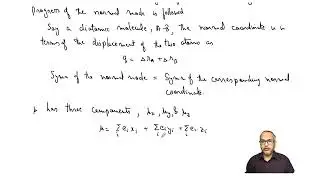 Progress of the normal mode is followed
Say a diatomic molecule, A-B, the normal coordinate is in
terms of the displacement of the two atoms as
q = Δr_A + Δr_B
Symm of the normal mode = Symm of the corresponding normal
coordinate.
μ has three components, μx, μy, & μz
μ = Σ_i e_i x_i + Σ_i e_i y_i + Σ e_i z_i